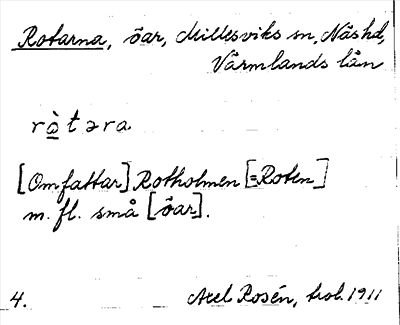 Rotarna, öar, Millesviks sn, Näs hd,
Värmlands län
rò̲təra
[Omfattar] Rotholmen [=Roten]
m. fl. små [öar].
4. Axel Rosén, trol. 1911